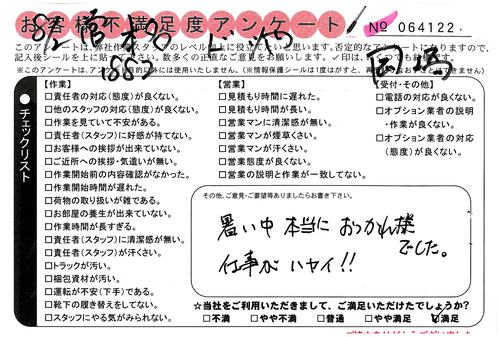 お客様不満足度アンケート
No 064122
このアンケートは弊社作業スタッフのレベル向上に役立てたいと思います。否定的なアンケートになりますので、
記入後シールを上に貼って下さい。数多くの正直なご意見をお願いします。✓印は、
※このアンケートは、アン
的以外には使用いたしません。(※情報保護シールは1度はがすと、
岡崎
チェックリスト
【作業】
□責任者の対応(態度)が良くない。
□他のスタッフの対応(態度)が良くない。
□作業を見ていて不安がある。
□責任者(スタッフ)に好感が持てない。
□お客様への挨拶が出来ていない。
□ご近所への挨拶・気遣いが無い。
□作業開始前の内容確認がなかった。
□作業開始時間が遅れた。
□荷物の取り扱いが雑である。
□お部屋の養生が出来ていない。
□作業時間が長すぎる。
□責任者(スタッフ)に清潔感が無い。
□責任者(スタッフ)が汗くさい。
□トラックが汚い。
□梱包資材が汚い。
□運転が不安(下手)である。
□靴下の履き替えをしてない。
□スタッフにやる気がみられない。
【営業】
□見積もり時間に遅れた。
□見積もり時間が長い。
□営業マンに清潔感が無い。
□営業マンが煙草くさい。
□営業マンが汗くさい。
□営業態度が良くない。
□営業の説明と作業が一致してない。
【受付・その他】
□電話の対応が良くない。
□オプション業者の説明
・作業が良くない。
□オプション業者の対応
(態度)が良くない。
その他、ご意見・ご要望等ありましたらお書き下さい。
暑い中 本当に おつかれ様
でした。
仕事が ハヤイ!!
☆当社をご利用いただきまして、ご満足いただけたでしょうか?
□不満 □やや不満 □普通 □やや満足 ☑満足